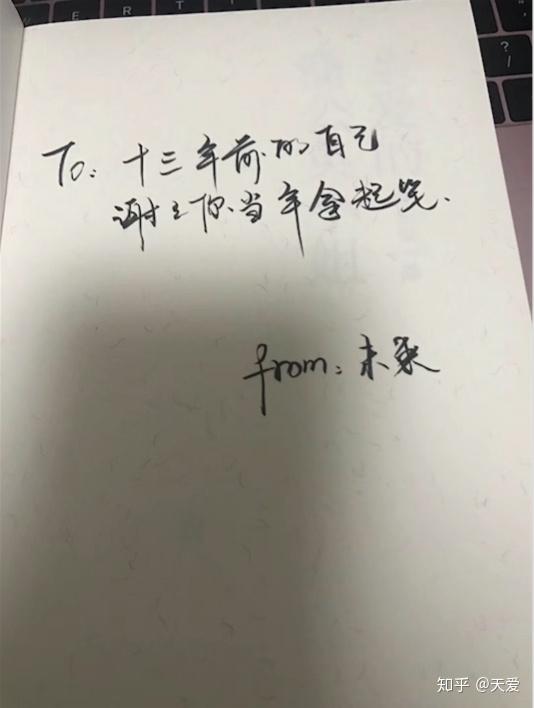 To: 十三年前的自己
谢谢你当年拿起笔.
from: 未来
知乎 @天爱